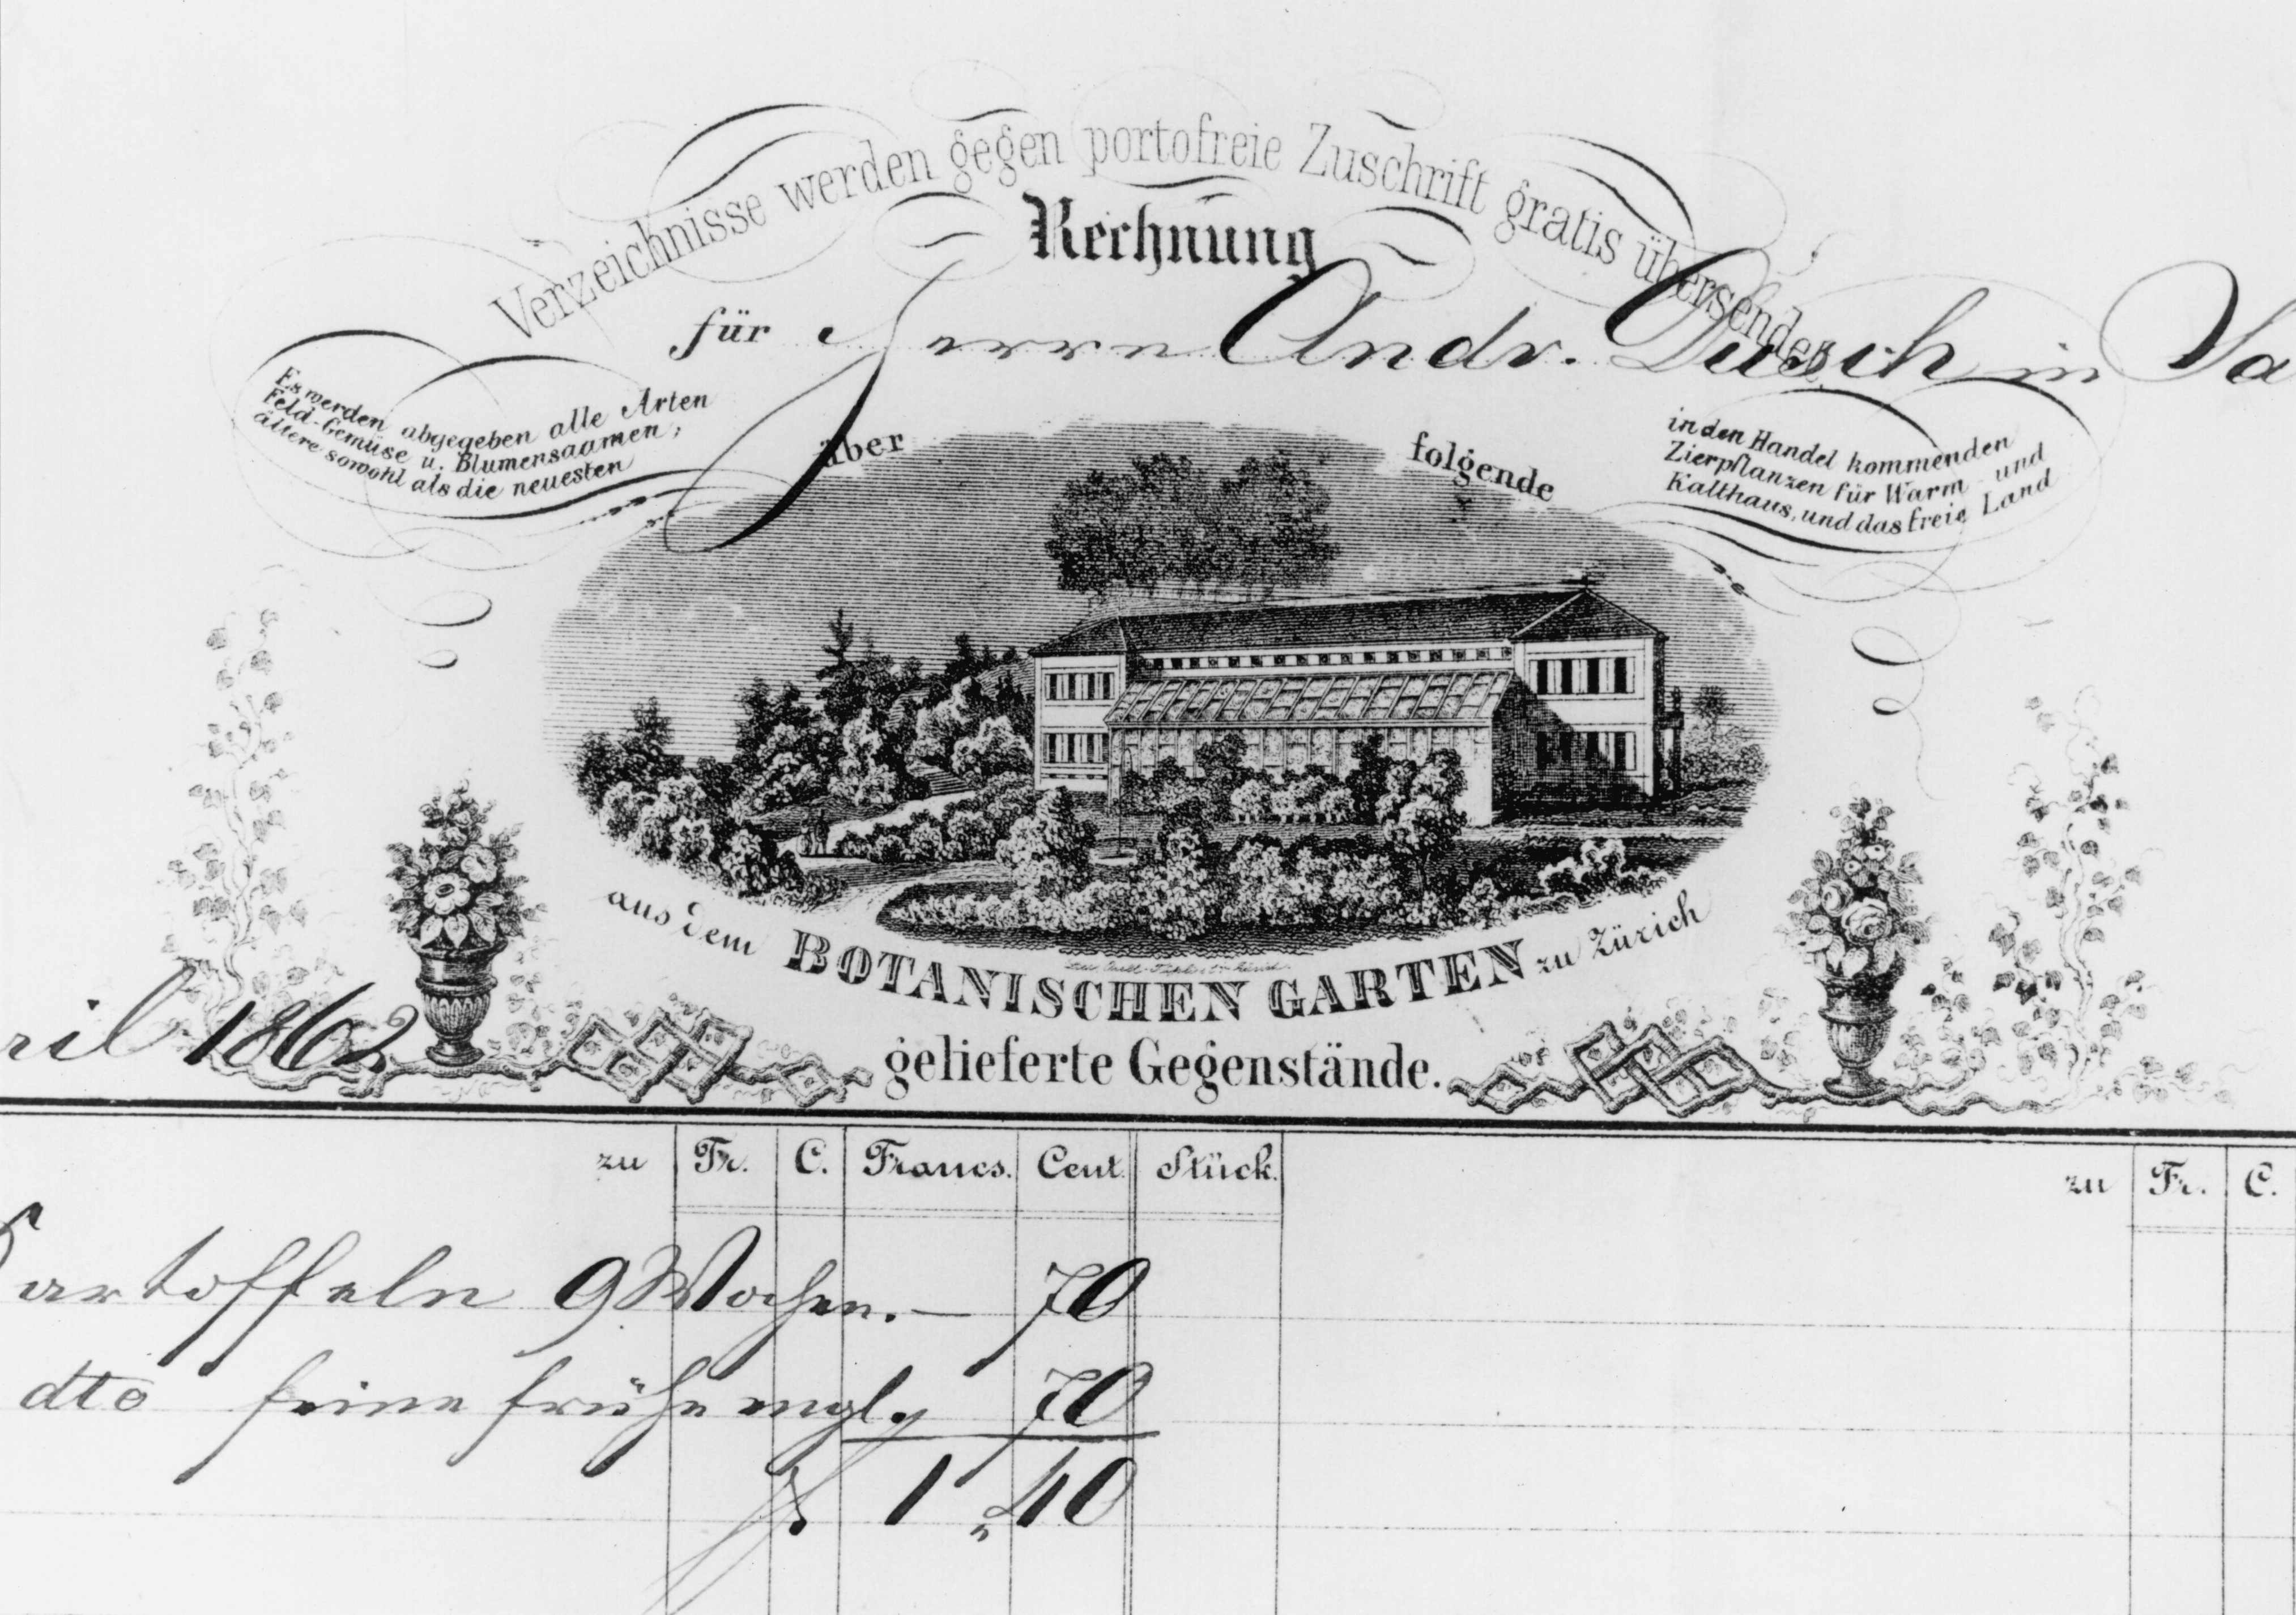 Verzeichnisse werden gegen portofreie Zuschrift gratis übersendet
Rechnung
für Herrn Andr. Dusch in Sa
Es werden abgegeben alle Arten
Feld-Gemüse u. Blumensaamen,
ältere sowohl als die neuesten
über folgende
in den Handel kommenden
Zierpflanzen für Warm- und
Kalthaus, und das freie Land
aus dem BOTANISCHEN GARTEN zu Zürich
ril 1862
gelieferte Gegenstände.
zu Fr. C. Francs. Cent. Stück. zu Fr. C.
Kartoffeln 9 Wochen. — 70
dto feine frühe engl. 70
1 „ 40